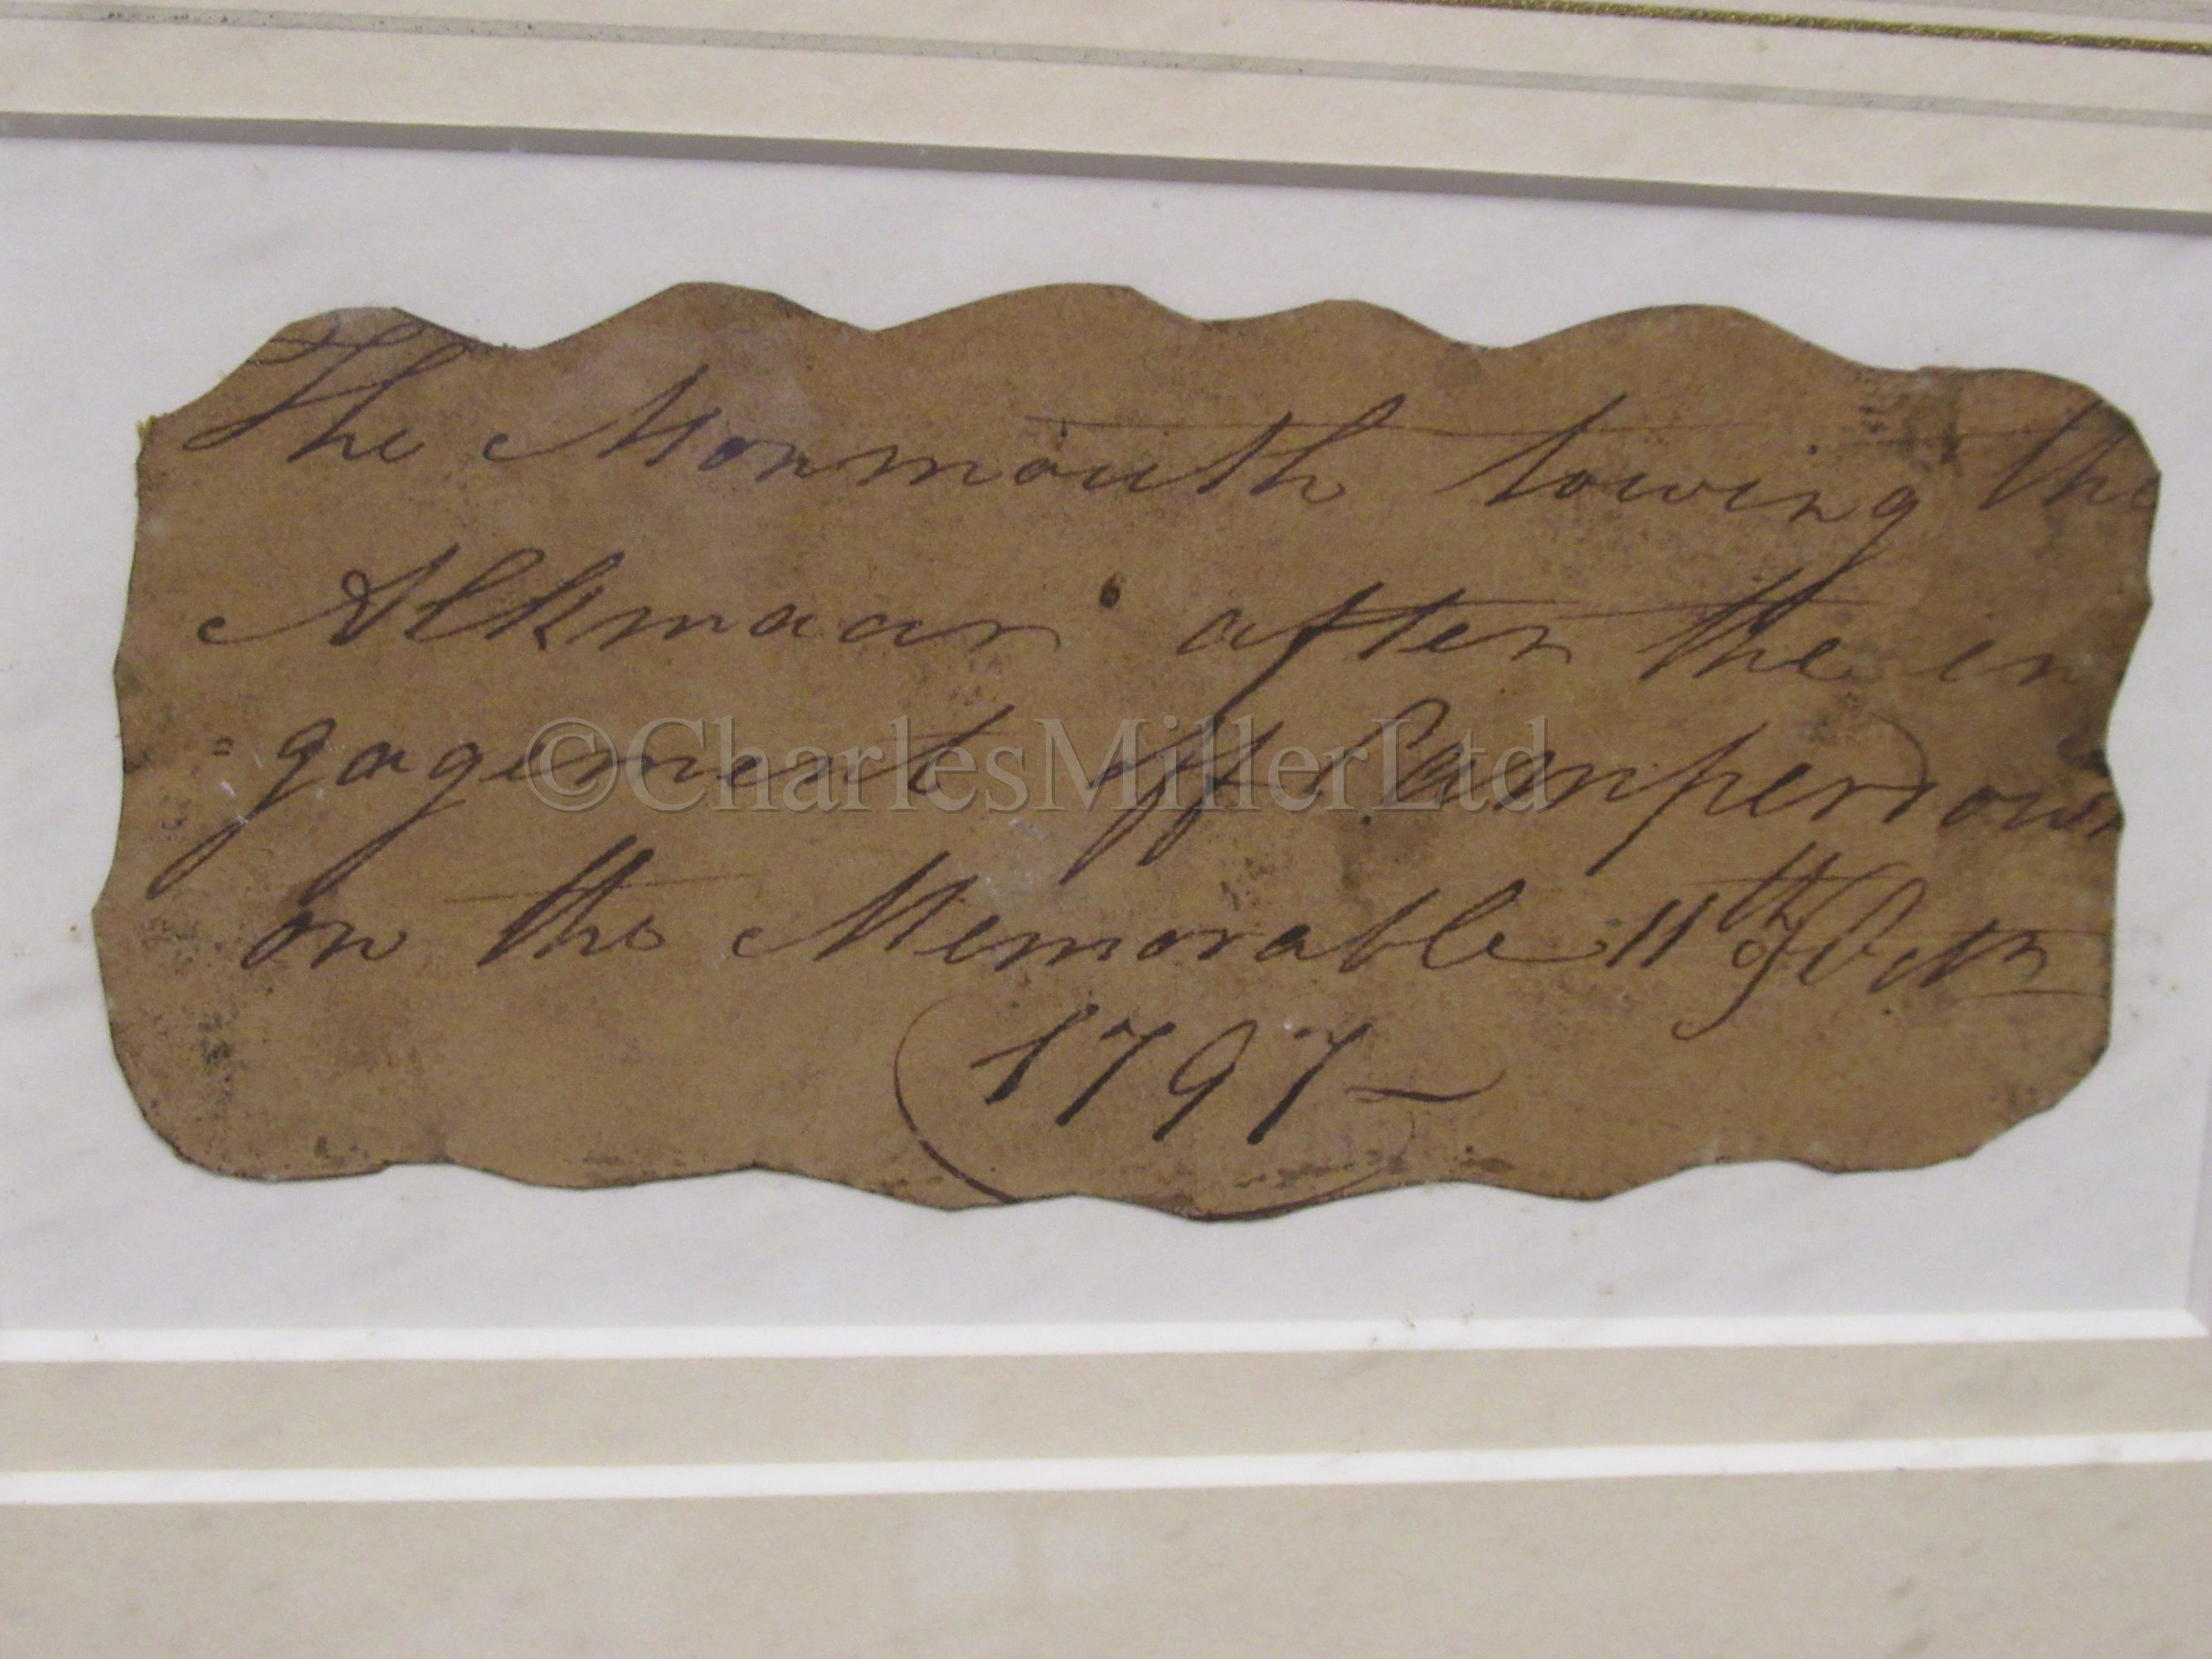 The Monmouth towing the
Alkmaar after the in
=gagement off Camperdown
on the Memorable 11th of Octr
1797-
©CharlesMillerLtd